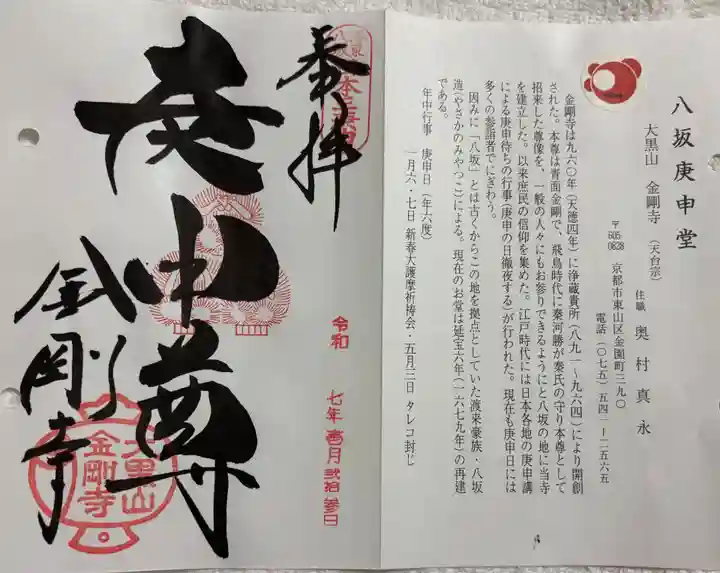 八坂庚申堂
大黒山 金剛寺(天台宗)
住職 奥村真永
〒605-0828 京都市東山区金園町三九〇
電話(〇七五)五四一ー二五六五
金剛寺は九六〇年(天徳四年)に浄蔵貴所(八九一〜九六四)により開創
された。本尊は青面金剛で、飛鳥時代に秦河勝が秦氏の守り本尊として
招来した尊像を、一般の人々にもお参りできるようにと八坂の地に当寺
を建立した。以来庶民の信仰を集めた。江戸時代には日本各地の庚申講
による庚申待ちの行事(庚申の日徹夜する)が行われた。現在も庚申日には
多くの参詣者でにぎわう。
因みに「八坂」とは古くからこの地を拠点としていた渡来豪族・八坂
造(やさかのみやつこ)による。現在のお堂は延宝六年(一六七九年)の再建
である。
年中行事 庚申日(年六度)
一月六・七日 新春大護摩祈祷会・五月三日 タレコ封じ
奉拝
庚申尊
金剛寺
令和 七年 壱月 弐拾参日
大黒山
金剛寺